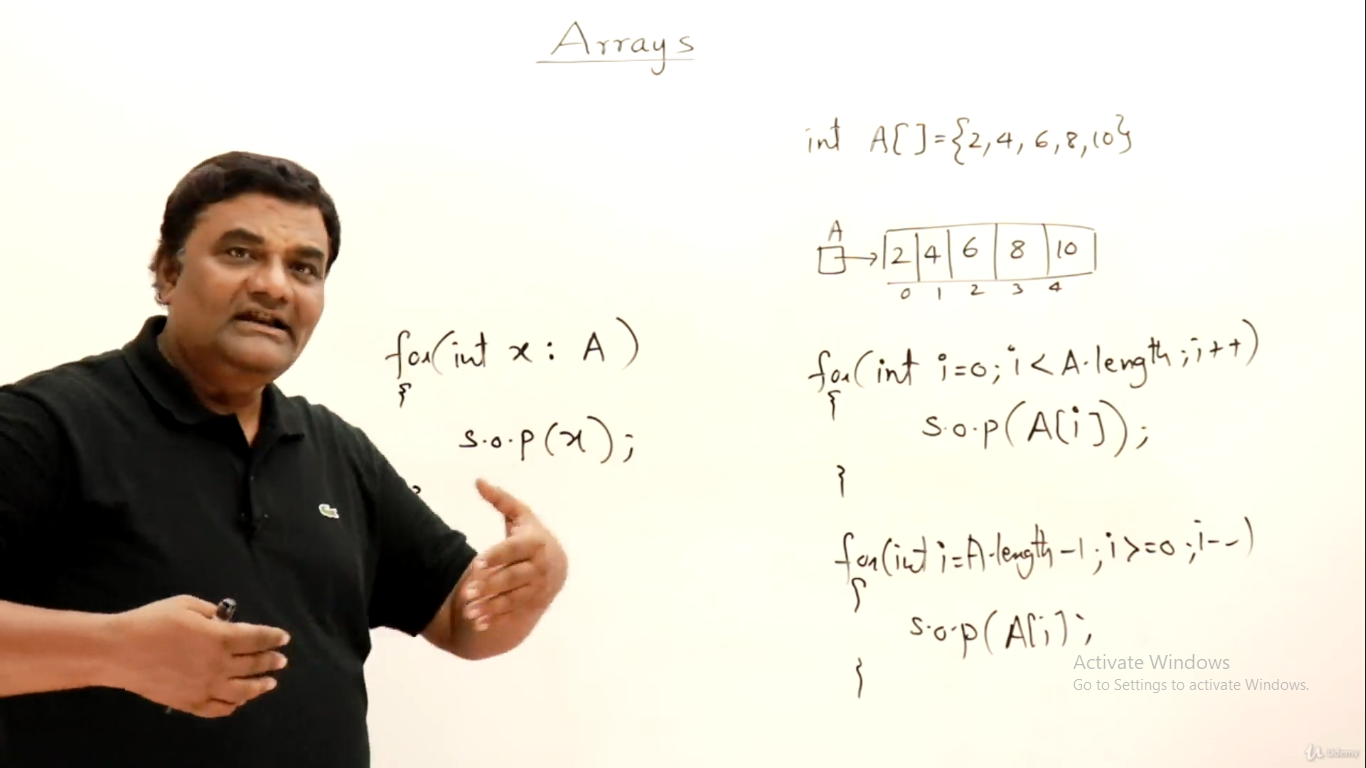 Arrays
int A[]={2,4,6,8,10}
A
2 4 6 8 10
0 1 2 3 4
for(int x : A)
{
s.o.p(x);
for(int i=0;i<A.length;i++)
{
s.o.p(A[i]);
}
for(int i=A.length-1;i>=0;i--)
{
s.o.p(A[i];
}
Activate Windows
Go to Settings to activate Windows.
Udemy